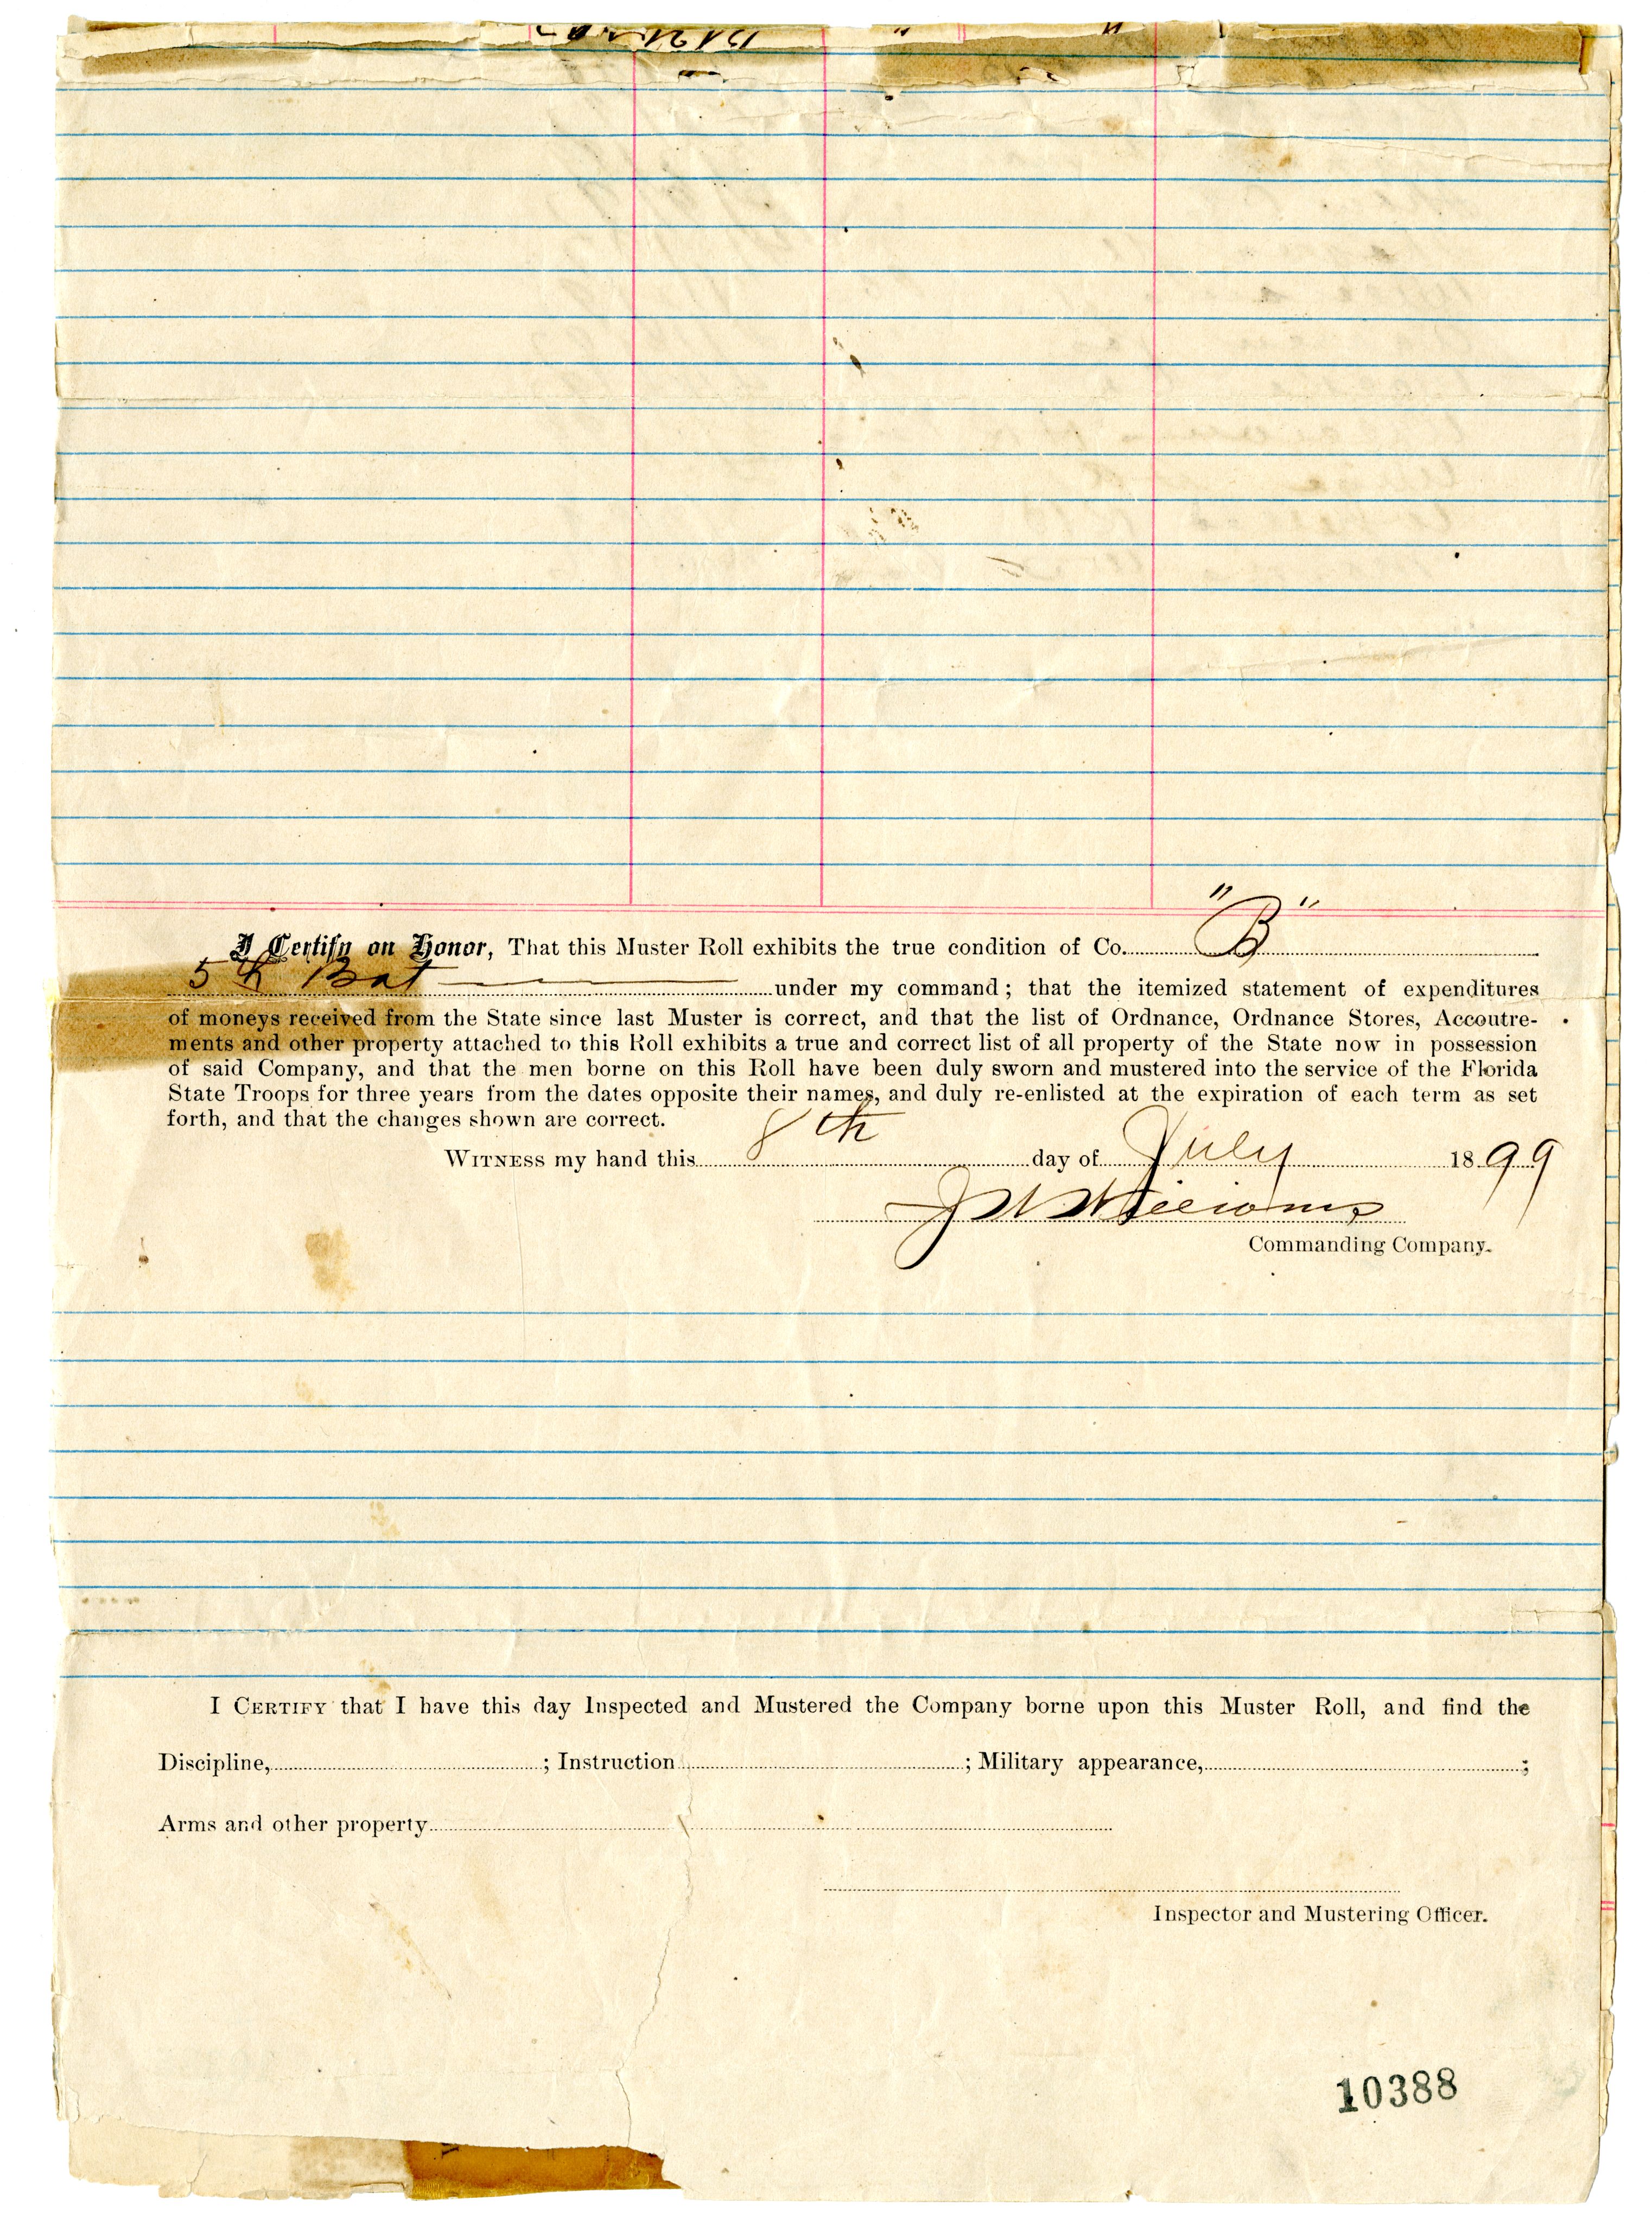 I Certify on Honor, That this Muster Roll exhibits the true condition of Co. "B"
5th Bat under my command; that the itemized statement of expenditures
of moneys received from the State since last Muster is correct, and that the list of Ordnance, Ordnance Stores, Accoutre-
ments and other property attached to this Roll exhibits a true and correct list of all property of the State now in possession
of said Company, and that the men borne on this Roll have been duly sworn and mustered into the service of the Florida
State Troops for three years from the dates opposite their names, and duly re-enlisted at the expiration of each term as set
forth, and that the changes shown are correct.
WITNESS my hand this 8th day of July 1899
Williams
Commanding Company.
I CERTIFY that I have this day Inspected and Mustered the Company borne upon this Muster Roll, and find the
Discipline, ; Instruction ; Military appearance, ;
Arms and other property
Inspector and Mustering Officer.
10388